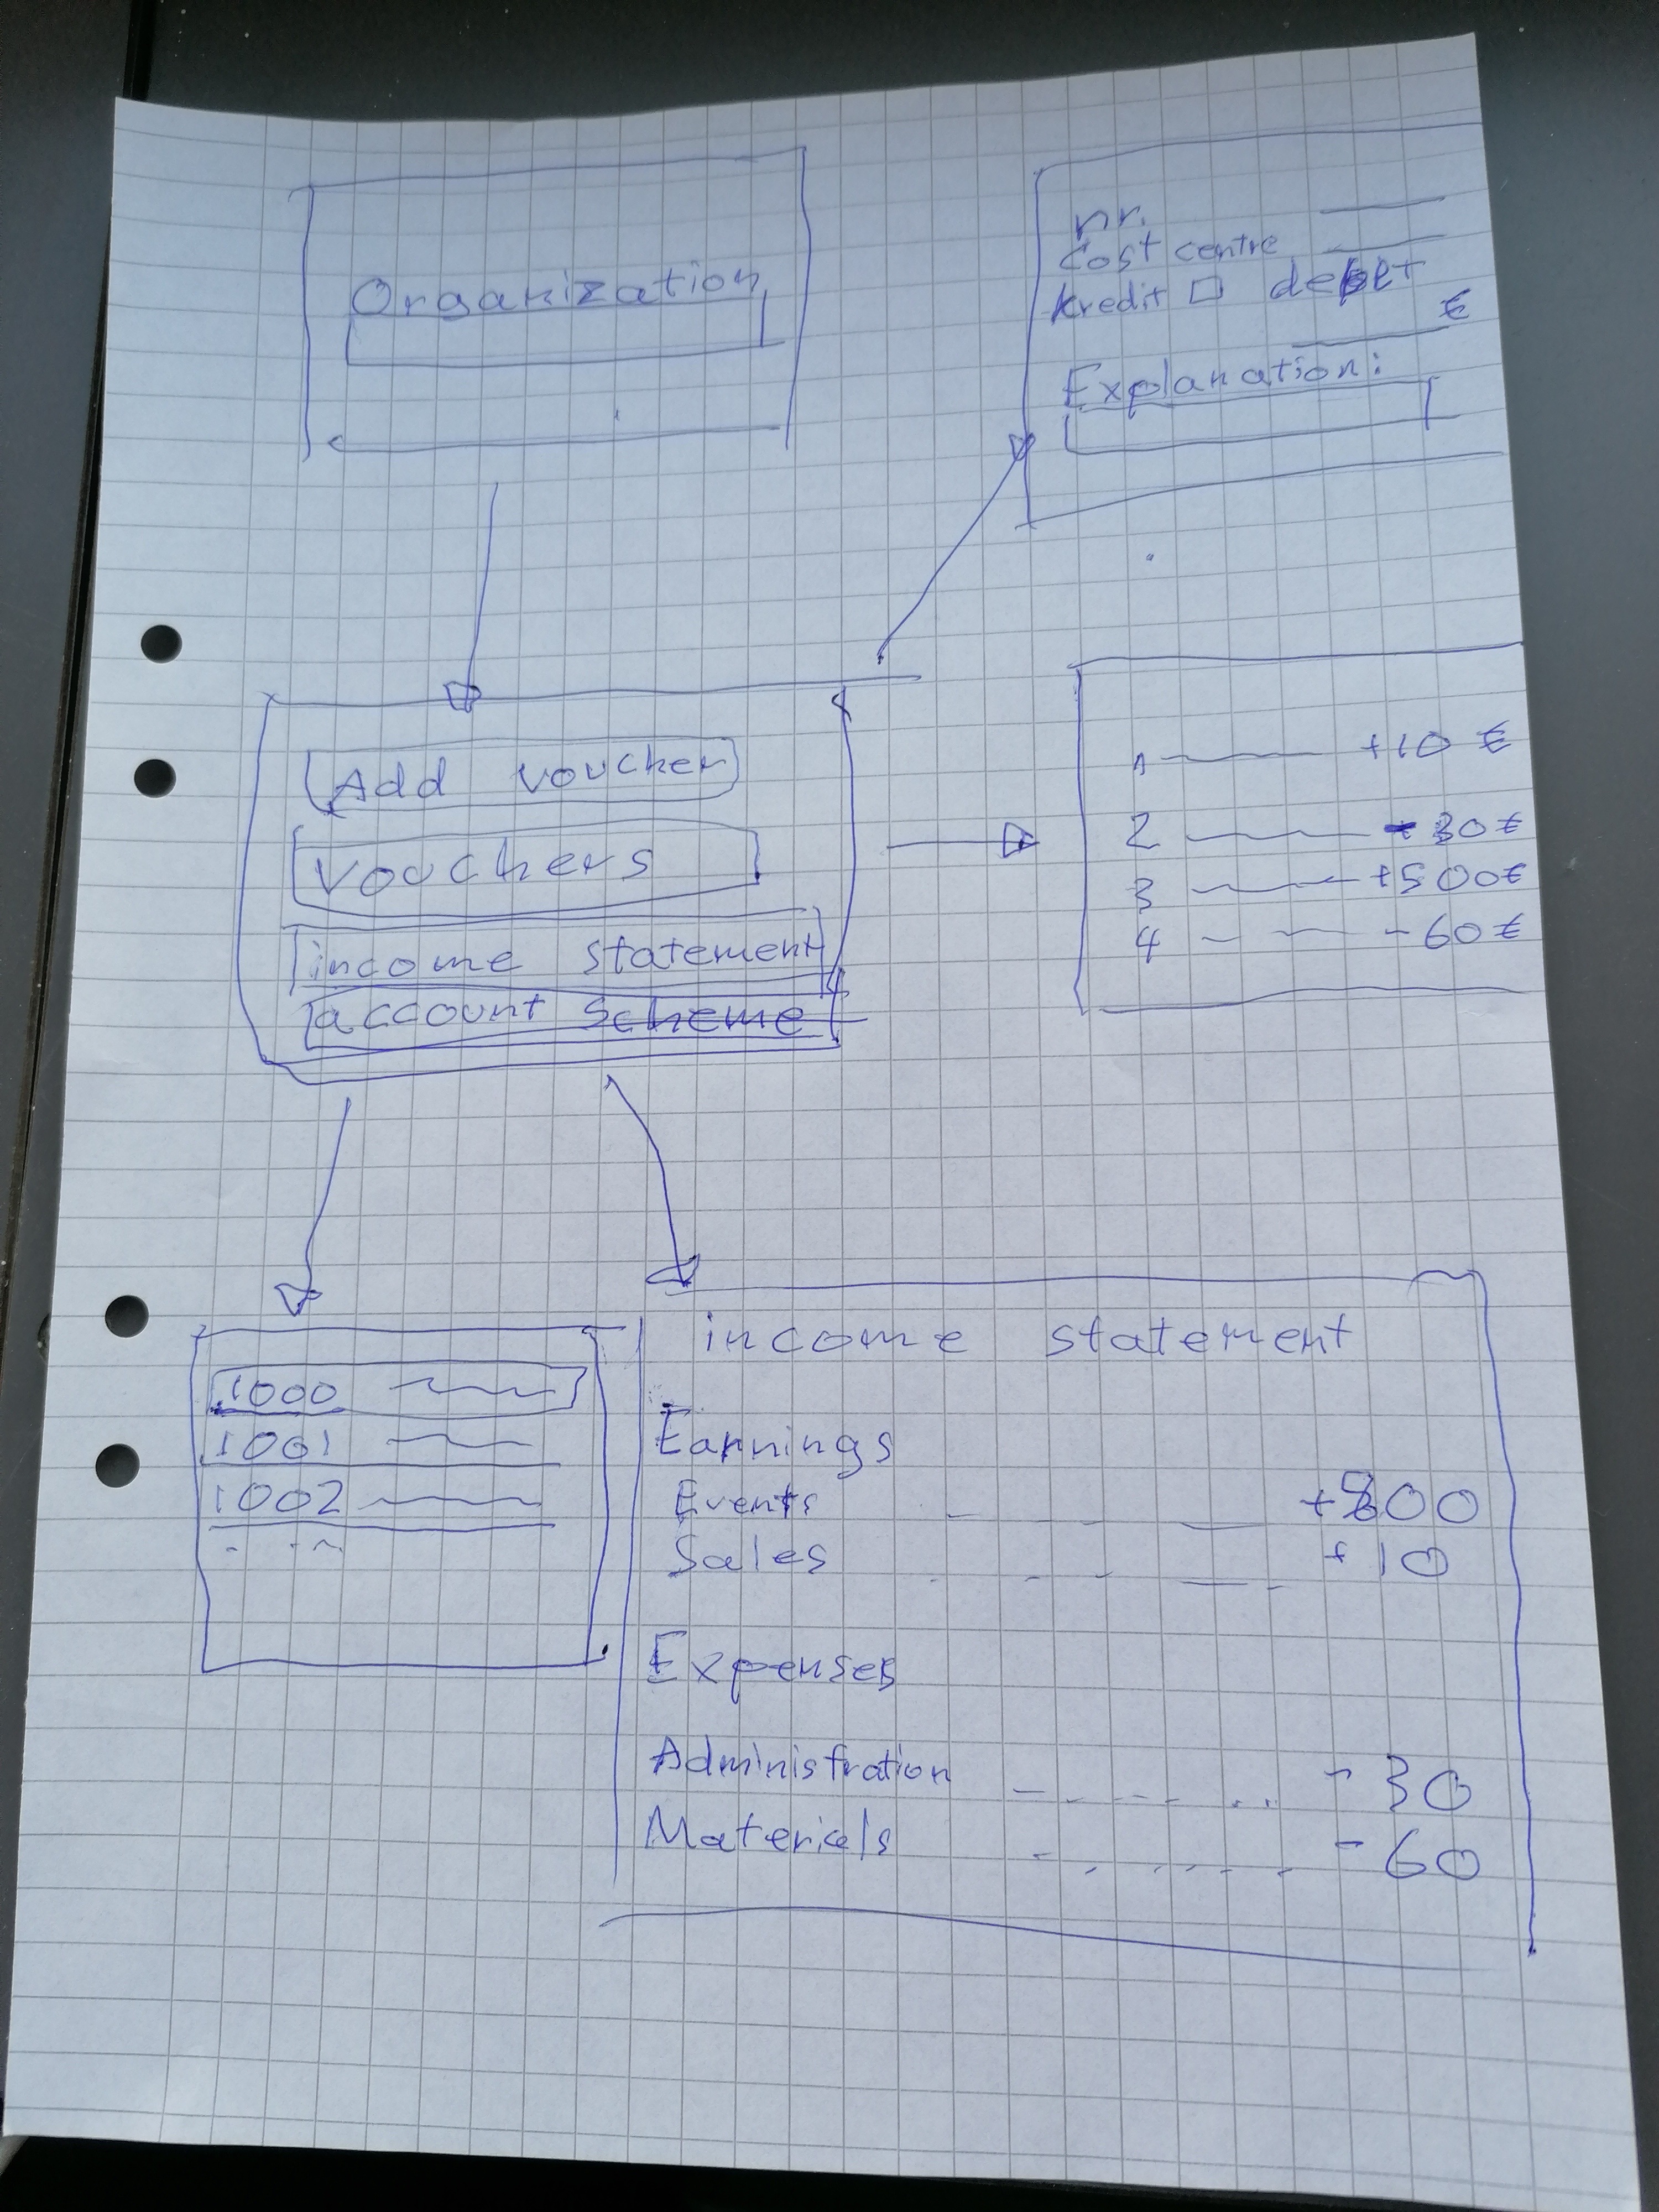 Organization
nr.
Cost centre
kredit debet
€
Explanation:
Add voucher
Vouchers
income statement
account scheme
1 +10 €
2 - 30 €
3 +500 €
4 - 60 €
1000
1001
1002
income statement
Earnings
Events +500
Sales + 10
Expenses
Administration - 30
Materials - 60